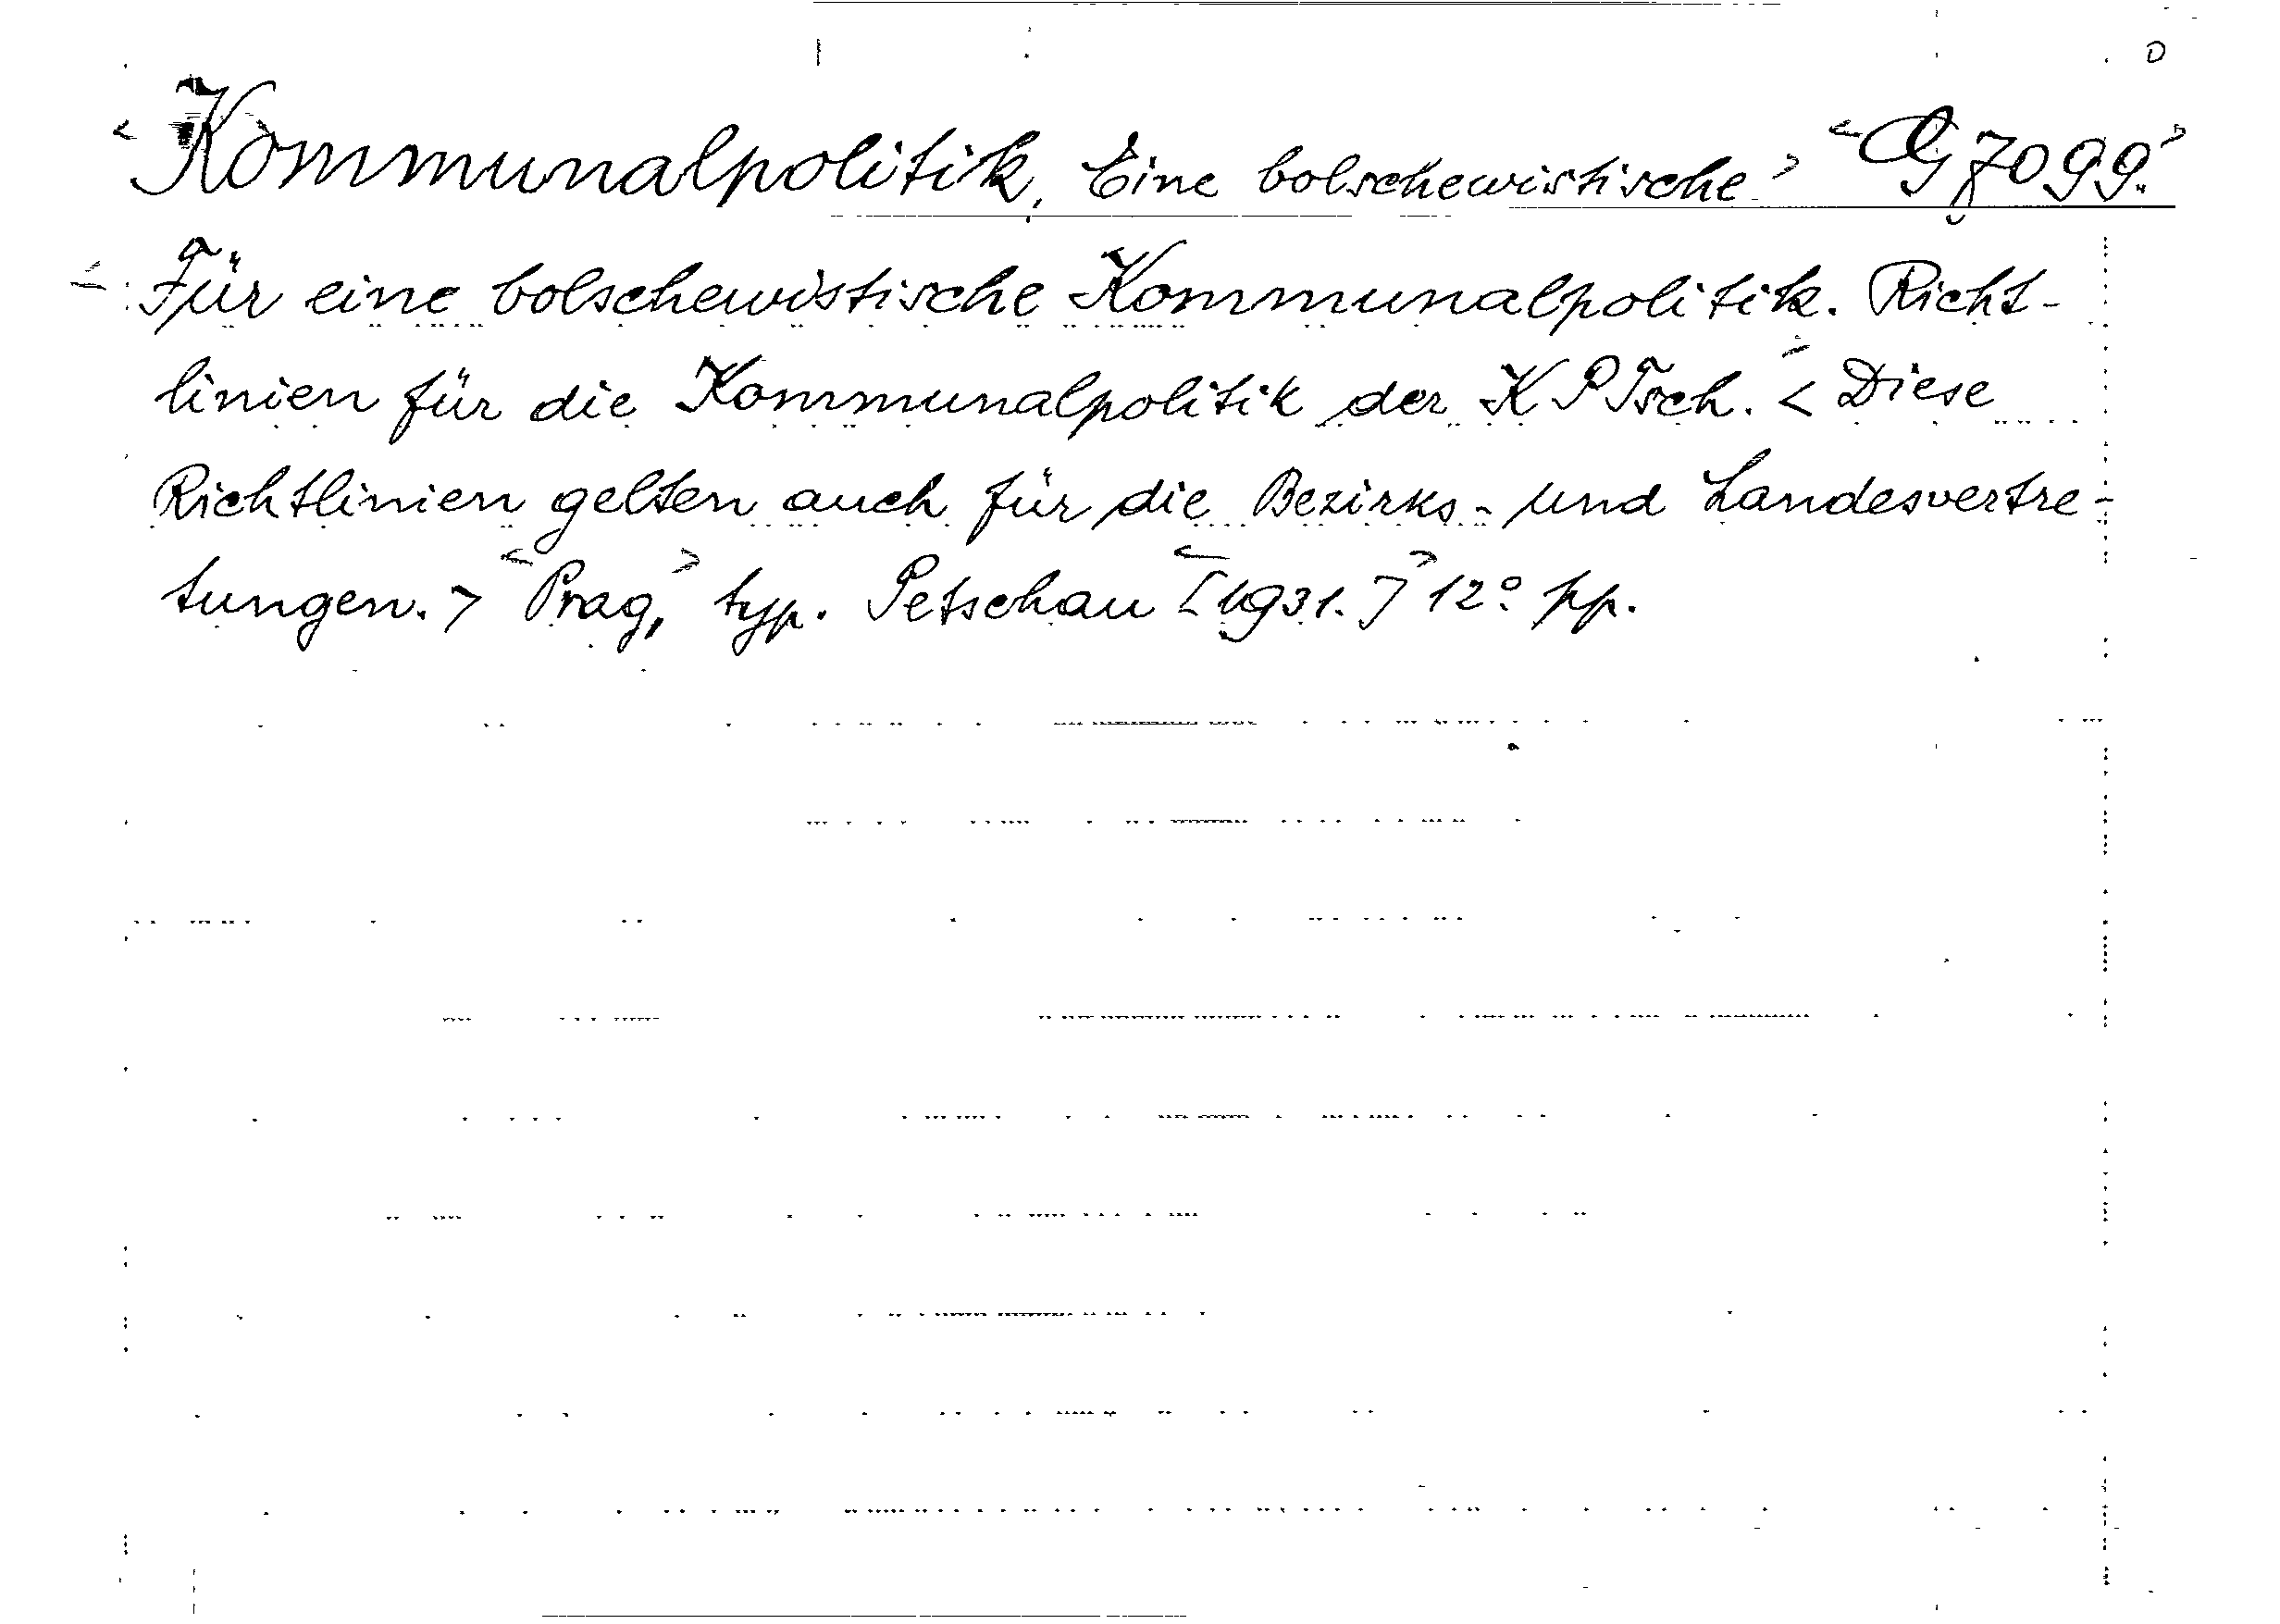 Kommunalpolitik, Eine bolschewistische G 7099.
Für eine bolschewistische Kommunalpolitik. Richt-
linien für die Kommunalpolitik der K P Tsch. < Diese
Richtlinien gelten auch für die Bezirks- und Landesvertre-
tungen. > Prag, typ. Petschau [1931.] 12° pp.